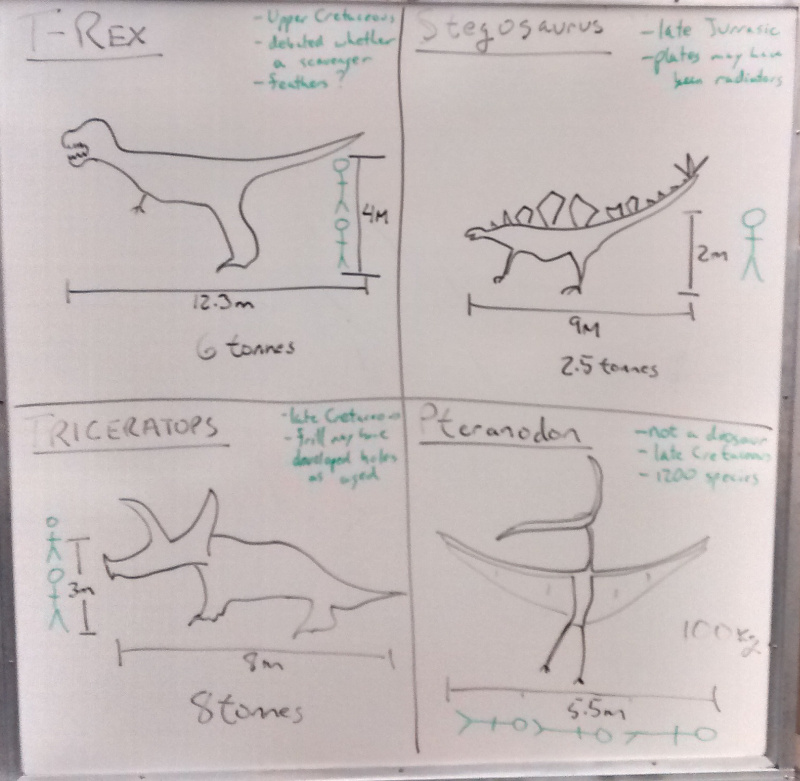 T-Rex
- Upper Cretaceous
- debated whether
a scavenger
- feathers?
4M
12.3m
6 tonnes
Stegosaurus
- late Jurrasic
- plates may have
been radiators
2m
9M
2.5 tonnes
TRICERATOPS
- late Cretaceous
- frill may have
developed holes
as aged
3m
8m
8 tonnes
Pteranodon
- not a dinosaur
- late Cretaceous
- 1200 species
100kg
5.5m